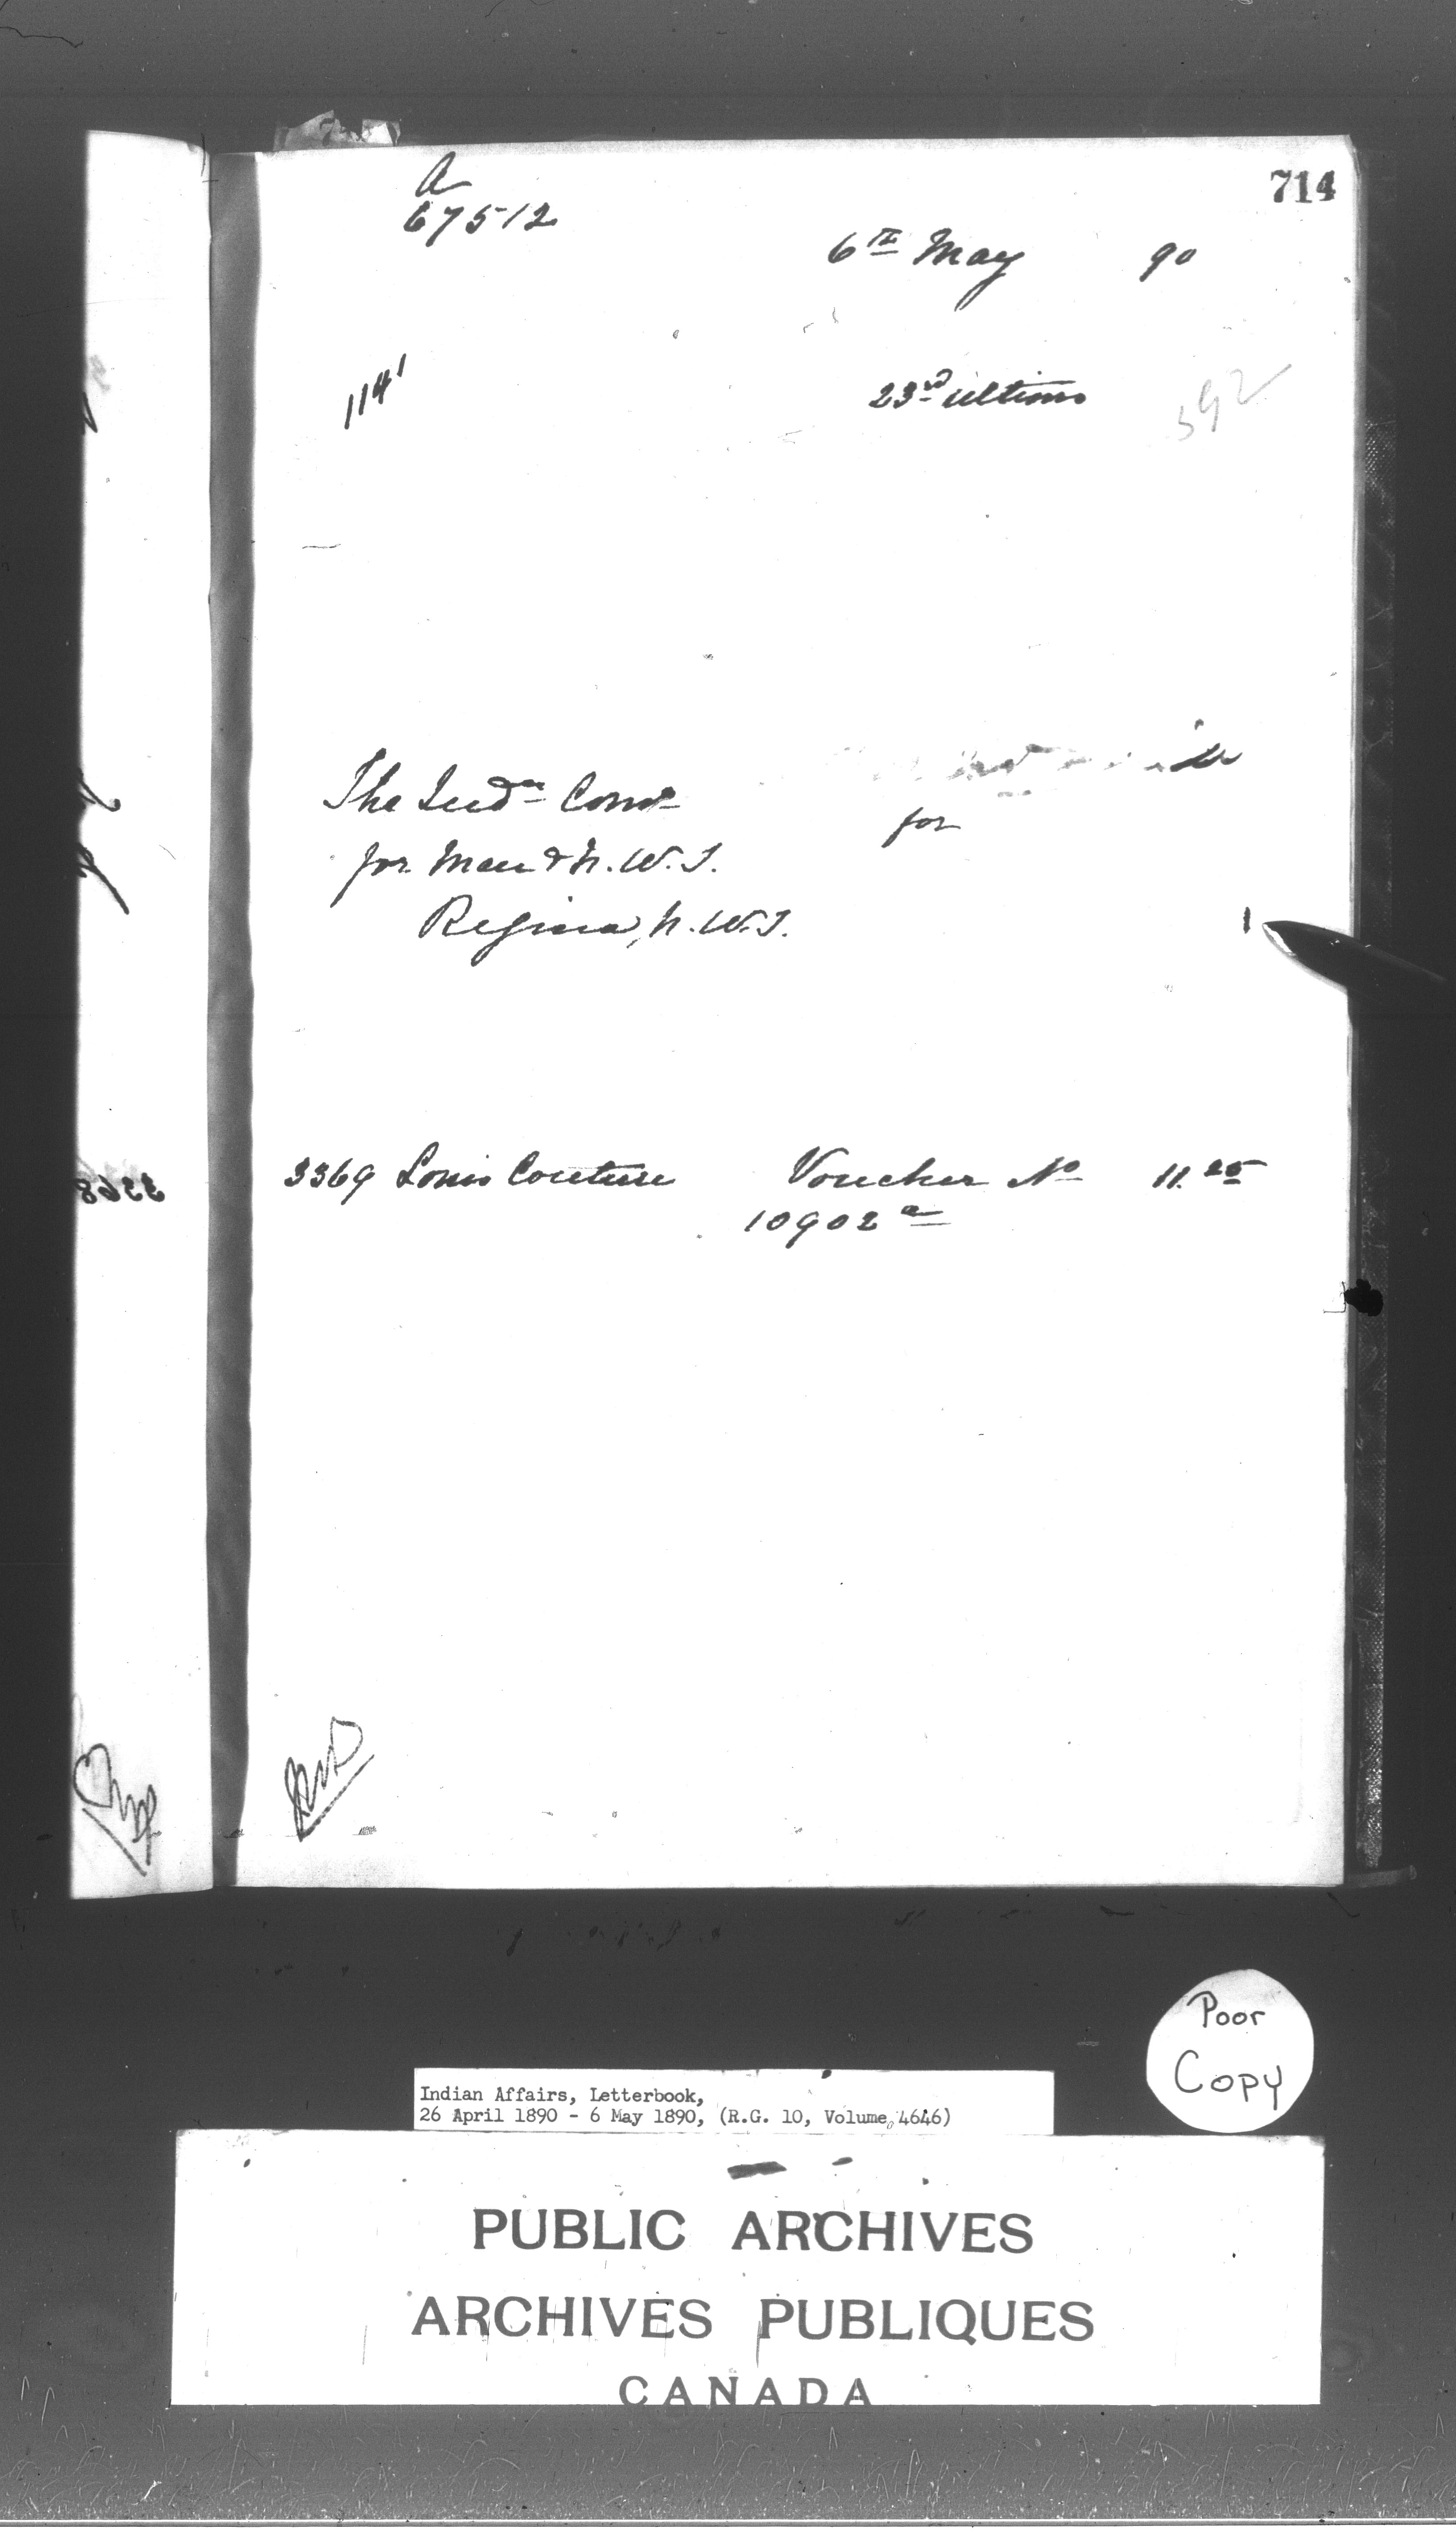 714
A
67512
6th May 90
114
23rd ultimo
392
The Indn Comr
for Man & N.W.T.
Regina, N.W.T.
for
3369 Louis Couture Voucher No 11.25
10902 a
3368
Poor
Copy
Indian Affairs, Letterbook,
26 April 1890 - 6 May 1890, (R.G. 10, Volume 4646)
PUBLIC ARCHIVES
ARCHIVES PUBLIQUES
CANADA